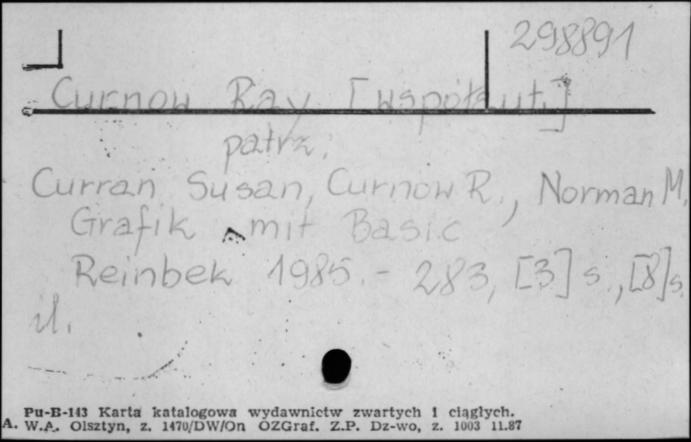 298891
Curnow Ray [współaut.]
patrz:
Curran Susan, Curnow R., Norman M.
Grafik mit Basic
Reinbek 1985.- 283, [3] s., [8] s.
il.
Pu-B-143 Karta katalogowa wydawnictw zwartych i ciągłych.
A. W.A. Olsztyn, z. 1470/DW/On OZGraf. Z.P. Dz-wo, z. 1003 11.87